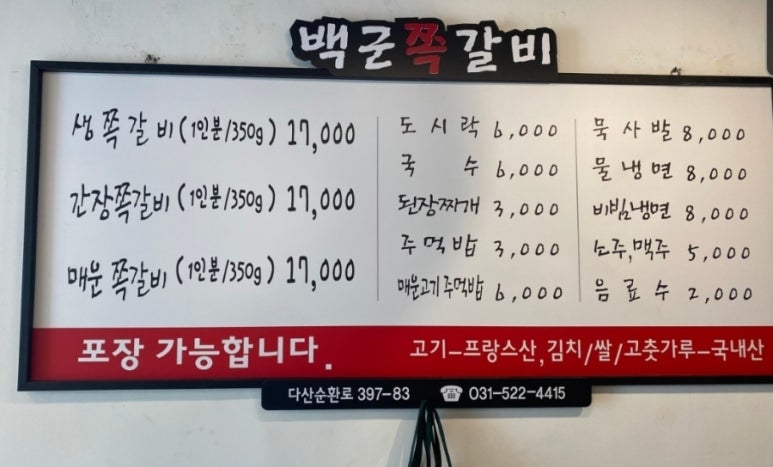 백군쪽갈비
생쪽갈비(1인분/350g) 17,000
간장쪽갈비(1인분/350g) 17,000
매운쪽갈비(1인분/350g) 17,000
도시락 6,000
국수 6,000
된장찌개 3,000
주먹밥 3,000
매운고기주먹밥 6,000
묵사발 8,000
물냉면 8,000
비빔냉면 8,000
소주,맥주 5,000
음료수 2,000
포장 가능합니다.
고기-프랑스산,김치/쌀/고춧가루-국내산
다산순환로 397-83 ☎ 031-522-4415